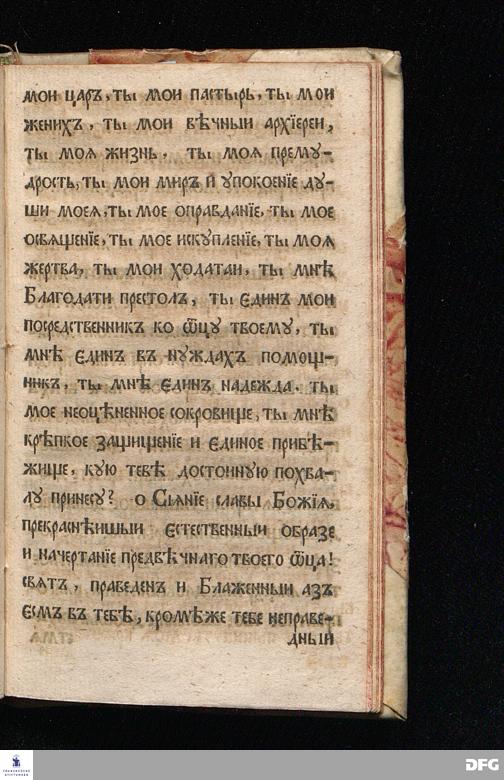 мои царъ, ты мои пастырь, ты мои
женихъ, ты мои вѣчныи архїереи,
ты моя жизнь, ты моя прему-
дрость, ты мои миръ и упокоенїе ду-
ши моея, ты мое оправданїе, ты мое
освященїе, ты мое искупленїе, ты моя
жертва, ты мои ходатаи, ты мнѣ
Благодати престолъ, ты єдинъ мои
посредственникъ ко ѿцу твоему, ты
мнѣ єдинъ въ нуждахъ помощ-
никъ, ты мнѣ єдинъ надежда. ты
мое неоцѣненное сокровище, ты мнѣ
крѣпкое защищенїе и єдиное прибѣ-
жище, кую тебѣ достоиную похва-
лу принесу? о Сїянїе славы Божїя,
прекраснѣишыи єстественныи образе
и начертанїе предвѣчнаго твоего ѿца!
святъ, праведенъ и Блаженныи азъ
єсмъ въ тебѣ, кромѣже тебе неправе-
дныи
FRANCKESCHE
STIFTUNGEN
DFG